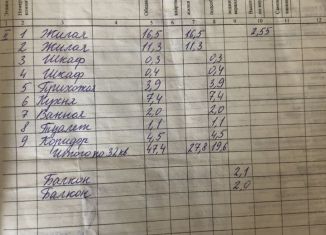 1 2 3 4 5 6 7 8 9 10 11 12
II 1 Жилая 16,5 16,5 2,55
2 Жилая 11,3 11,3
3 Шкаф 0,3 0,3
4 Шкаф 0,4 0,4
5 Прихожая 3,9 3,9
6 Кухня 7,4 7,4
7 Ванная 2,0 2,0
8 Туалет 1,1 1,1
9 Коридор 4,5 4,5
Итого по 32 кв 47,4 27,8 19,6
Балкон 2,1
Балкон 2,0